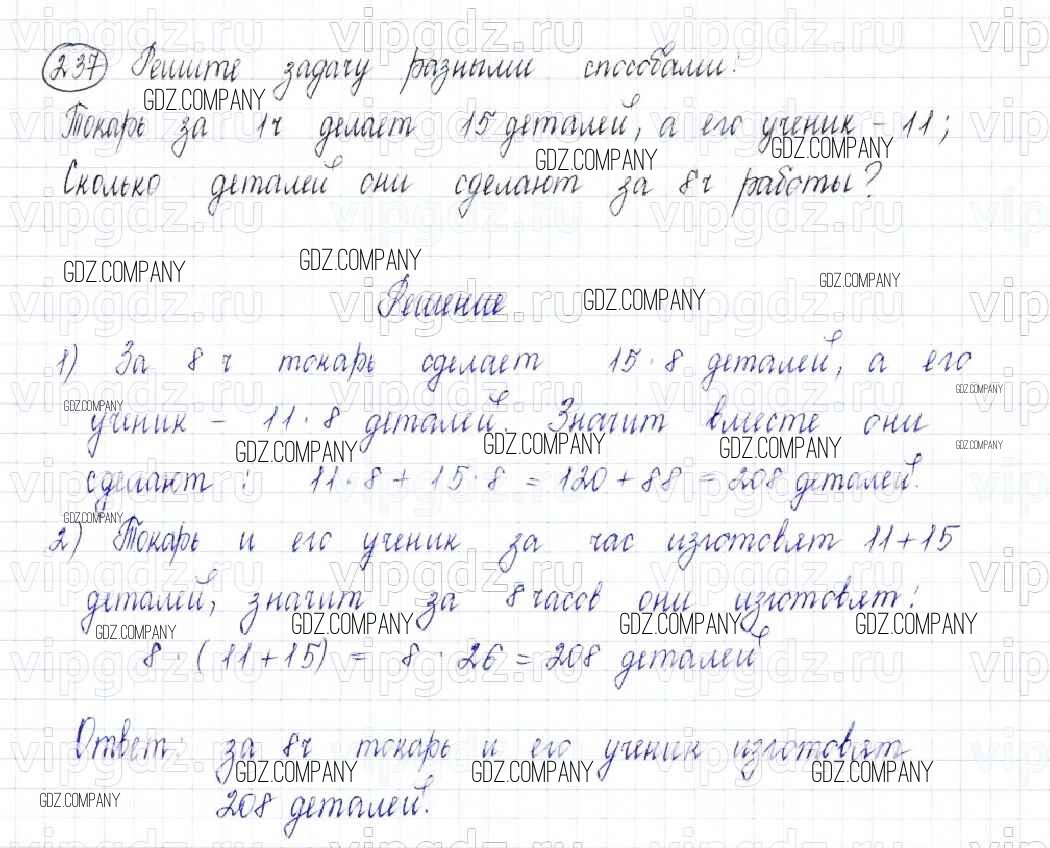 237 Решите задачу разными способами:
Токарь за 1ч делает 15 деталей, а его ученик - 11;
Сколько деталей они сделают за 8ч работы?
Решение
1) За 8 ч токарь сделает 15 · 8 деталей, а его
ученик - 11 · 8 деталей. Значит вместе они
сделают : 11·8 + 15·8 = 120 + 88 = 208 деталей.
2) Токарь и его ученик за час изготовят 11+15
деталей, значит за 8 часов они изготовят:
8 · (11+15) = 8 · 26 = 208 деталей
Ответ: за 8ч токарь и его ученик изготовят
208 деталей.
vipgdz.ru
GDZ.COMPANY